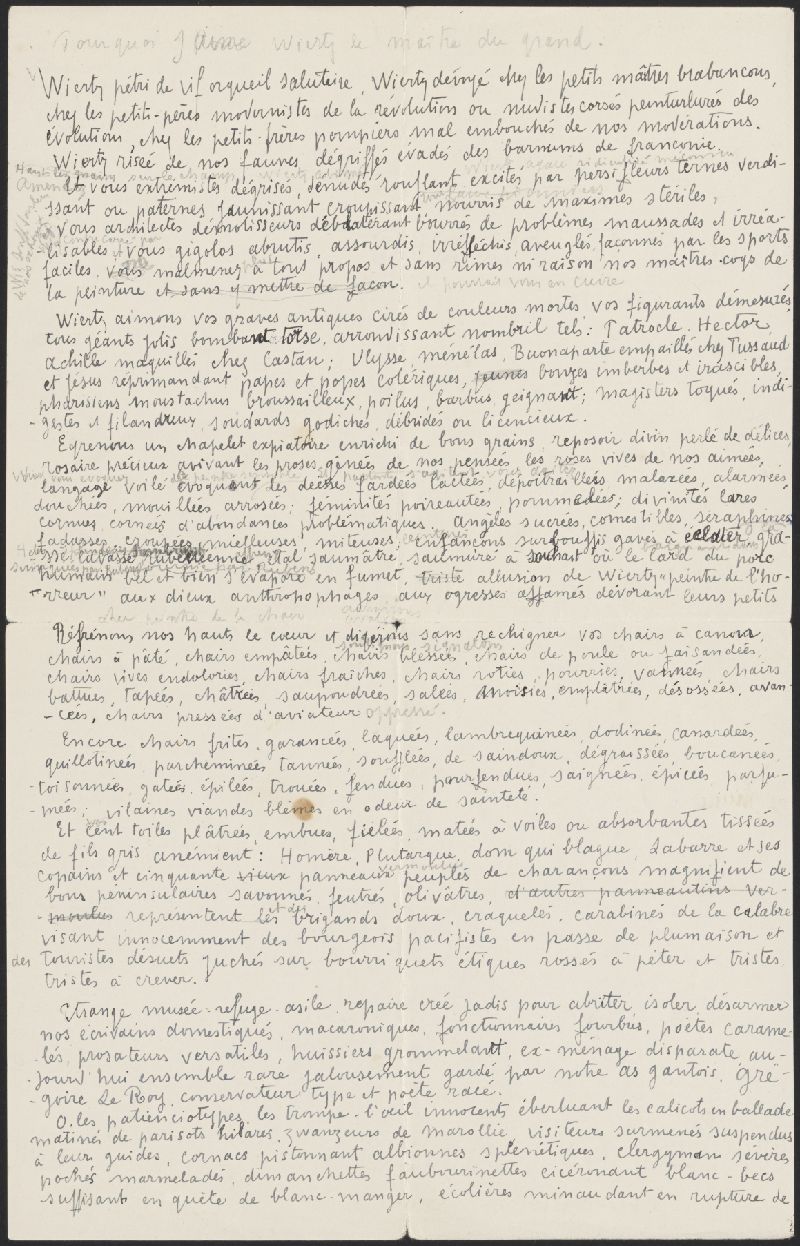 Pourquoi j'aime Wiertz le maître du grand.
Wiertz pétri de vif orgueil salutaire, Wiertz dévoyé chez les petits maîtres brabançons,
chez les petits-pères modernistes de la révolution ou nudistes corsés peinturlurés des
évolutions, chez les petits-frères pompiers mal embouchés de nos modérations.
Wiertz risée de nos faunes dégriffés évadés des barnums de franconie.
Et vous extrémistes dégrisés, dénudés, souffrant excités par persifleurs ternes verdi-
ssant ou paternes jaunissant croupissant nourris de maximes stériles,
vous architectes démolisseurs déblatérant bourrés de problèmes maussades et irréa-
-lisables, vous gigolos abrutis, assourdis, irréfléchis aveugles façonnés par les sports
faciles, vous malmenez à tout propos et sans rimes ni raison nos maîtres-coqs de
la peinture et sans y mettre de façon. et pourrait vous en cuire
Wiertz aimons vos graves antiques cirés de couleurs mortes vos figurants démesurés,
tous géants jolis bombant torse, arrondissant nombril tels: Patrocle. Hector,
achille maquillés chez Castan; Ulysse, ménélas, Buonaparte empaillés chez Tussaud
et Jésus réprimandant papes et popes colériques, jeunes bonzes imberbes et irascibles,
pharisiens moustachus broussailleux, poilus, barbus geignant; magisters toqués, indi-
-gestes et filandreux, soudards godiches, débridés ou licencieux.
Egrenons un chapelet expiatoire enrichi de bons grains, reposoir divin perlé de délices,
rosaire précieux avivant les proses gênées de nos pensées les roses vives de nos aimées,
langage voilé évoquant des déesses fardées lactées, dépoitraillées malaxées, alarmées
douchées, mouillées arrosées; féminités poireautées, pommadées; divinités lares
cornues, cornées d'abondances problématiques. Angèles sucrées, comestibles, séraphines
fadasses, croupées, mielleuses, miteuses, enfançons surbouffis gavés à éclater, gra-
sse lavasse rubénienne, étal saumâtre saumuré à souhait où le lard du porc
humain bel et bien s'évapore en fumet, triste allusion de Wiertz "peintre de l'ho-
"rreur" aux dieux anthropophages aux ogresses affamés dévorant leurs petits
cher peintre de la chair
Réfrénons nos hauts le cœur et digérons sans rechigner vos chairs à canon,
chairs à pâté, chairs empâtées, chairs blessées, chairs de poule ou faisandées,
chairs vives endolories, chairs fraîches, chairs roties, pourries, vannées, chairs
battues, tapées, châtrées, saupoudrées, salées, moisies, emplâtrées, désossées, avan-
-cées, chairs pressées d'aviateur oppressé.
Encore chairs frites, garancées, laquées, lambrequinées, dodinées, canardées,
guillotinées, parcheminées, tannées, soufflées, de saindoux, dégraissées, boucanées,
-toisonnées, gatées, épilées, trouées, fendues, pourfendues, saignées, épicées, parfu-
-mées; vilaines viandes blêmes en odeur de sainteté.
Et cent toiles plâtrées, embues, fielées, matées à voiles ou absorbantes tissées
de fils gris anémient: Homère, Plutarque, dom qui blague, Labarre et ses
copains et cinquante vieux panneaux vermoulus peuplés de charançons magnifient de
bons péninsulaires savonnés, feutrés, olivâtres, d'autres panneautins ver-
-moulus représentent les et des brigands doux, craquelés, carabinés de la calabre
visant innocemment des bourgeois pacifistes en passe de plumaison et
des touristes désuets juchés sur bourriquets étiques rossés à péter et tristes,
tristes à crever.
Etrange musée-refuge-asile, repaire créé jadis pour abriter isoler, désarmer
nos écrivains domestiqués, macaroniques, fonctionnaires fourbus, poètes carame-
-lés, prosateurs versatiles, huissiers grommelant, ex-ménage disparate, au-
-jourd'hui ensemble rare jalousement gardé par notre as gantois, Gré-
-goire Le Roy, conservateur type et poète racé.
O les patienciotypes, les trompe-l'œil innocents éberluant les calicots en ballade
matinés de parisots hilares, zwanzeurs de marollie, visiteurs surmenés suspendus
à leur guides, cornacs pistonnant albionnes splénétiques, clergyman sévères
pochés marmelades, dimanchettes faubourinettes cicéronant blanc-becs
suffisant en quête de blanc-manger, écolières minaudant en rupture de